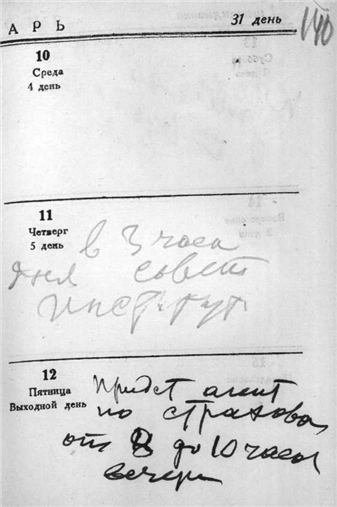 АРЬ 31 день
140
10
Среда
4 день
11
Четверг
5 день
в 3 часа
дня совет
Институт
12
Пятница
Выходной день
Придет агент
по страхов
от 8 до 10 часов
вечера